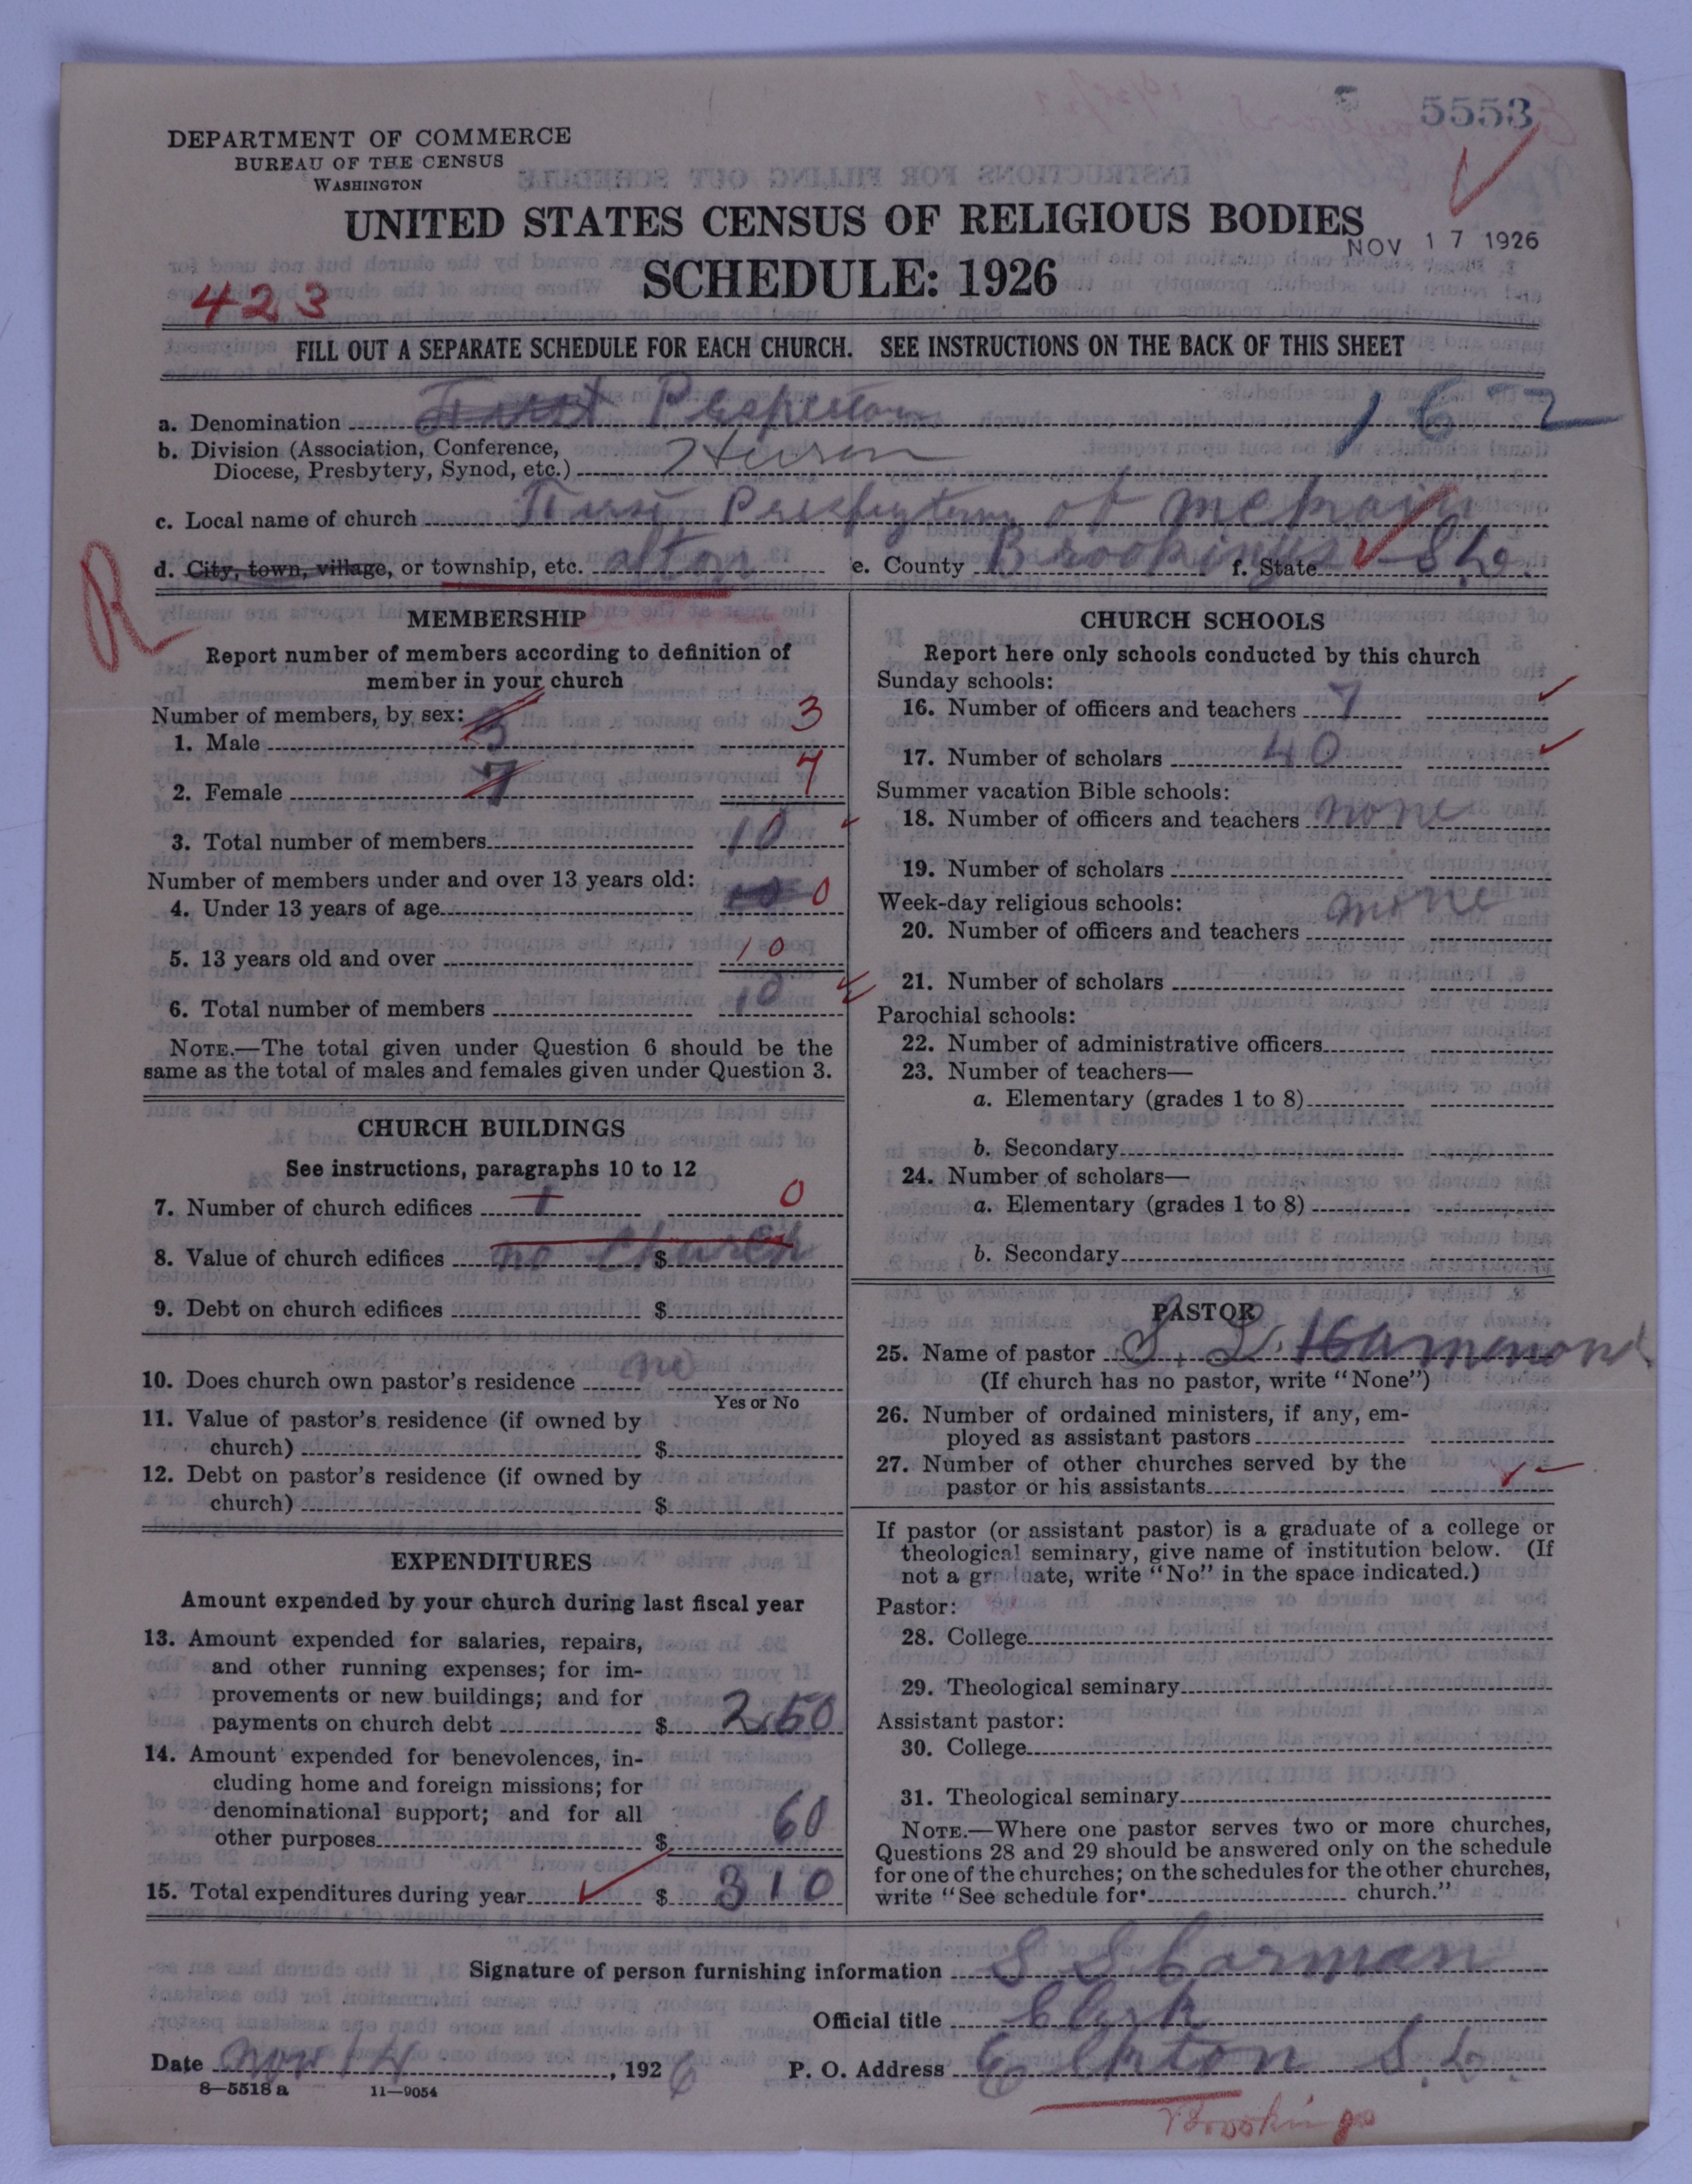 5553
DEPARTMENT OF COMMERCE
BUREAU OF THE CENSUS
WASHINGTON
UNITED STATES CENSUS OF RELIGIOUS BODIES
NOV 17 1926
SCHEDULE: 1926
423
FILL OUT A SEPARATE SCHEDULE FOR EACH CHURCH. SEE INSTRUCTIONS ON THE BACK OF THIS SHEET
a. Denomination 162
b. Division (Association, Conference,
Diocese, Presbytery, Synod, etc.) Huron
c. Local name of church of
d. City, town, village, or township, etc. alton e. County Brookings f. State S D.
R
MEMBERSHIP
Report number of members according to definition of
member in your church
Number of members, by sex:
1. Male 3 3
2. Female 7 7
3. Total number of members 10
Number of members under and over 13 years old:
4. Under 13 years of age 0
5. 13 years old and over 10
6. Total number of members 10
NOTE.—The total given under Question 6 should be the
same as the total of males and females given under Question 3.
CHURCH BUILDINGS
See instructions, paragraphs 10 to 12
7. Number of church edifices 1 0
8. Value of church edifices $ no church
9. Debt on church edifices $
10. Does church own pastor's residence no
Yes or No
11. Value of pastor's residence (if owned by
church) $
12. Debt on pastor's residence (if owned by
church) $
EXPENDITURES
Amount expended by your church during last fiscal year
13. Amount expended for salaries, repairs,
and other running expenses; for im-
provements or new buildings; and for
payments on church debt $ 250
14. Amount expended for benevolences, in-
cluding home and foreign missions; for
denominational support; and for all
other purposes $ 60
15. Total expenditures during year $ 310
CHURCH SCHOOLS
Report here only schools conducted by this church
Sunday schools:
16. Number of officers and teachers 7
17. Number of scholars 40
Summer vacation Bible schools:
18. Number of officers and teachers none
19. Number of scholars
Week-day religious schools:
20. Number of officers and teachers none
21. Number of scholars
Parochial schools:
22. Number of administrative officers
23. Number of teachers—
a. Elementary (grades 1 to 8)
b. Secondary
24. Number of scholars—
a. Elementary (grades 1 to 8)
b. Secondary
PASTOR
25. Name of pastor S. L. Hammond
(If church has no pastor, write "None")
26. Number of ordained ministers, if any, em-
ployed as assistant pastors
27. Number of other churches served by the
pastor or his assistants
If pastor (or assistant pastor) is a graduate of a college or
theological seminary, give name of institution below. (If
not a graduate, write "No" in the space indicated.)
Pastor:
28. College
29. Theological seminary
Assistant pastor:
30. College
31. Theological seminary
NOTE.—Where one pastor serves two or more churches,
Questions 28 and 29 should be answered only on the schedule
for one of the churches; on the schedules for the other churches,
write "See schedule for church."
Signature of person furnishing information S S Carman
Official title Clerk
Date Nov 14, 1926 P. O. Address Elkton S. D.
8—5518 a 11—9054
Brookings